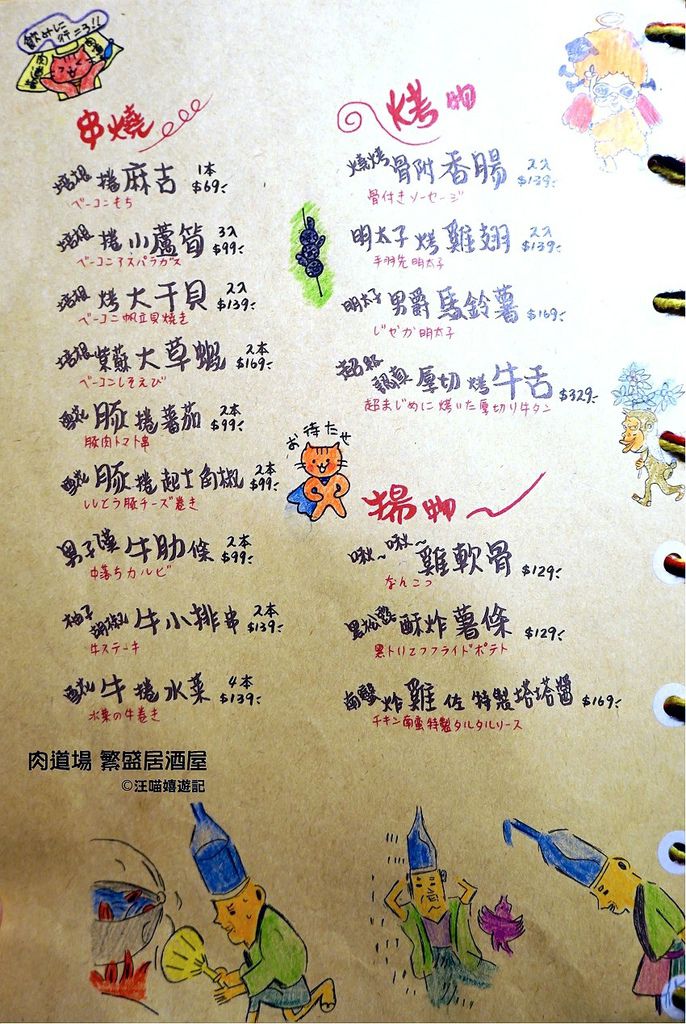 飲みに
行こう!!
肉道場
串燒
培根 捲 麻吉 1本 $69
ベーコンもち
培根 捲 小蘆筍 3入 $99
ベーコンアスパラガス
培根 烤 大干貝 2入 $139
ベーコン帆立貝焼き
培根 紫蘇 大草蝦 2本 $169
ベーコンしそえび
豚捲蕃茄 2本 $99
豚肉トマト串
豚捲起士角椒 2本 $99
ししとう豚チーズ巻き
男子漢 牛肋條 2本 $99
中落ちカルビ
柚子胡椒 牛小排串 2本 $139
牛ステーキ
牛捲水菜 4本 $139
水菜の牛巻き
烤物
燒烤 骨附香腸 2入 $139
骨付きソーセージ
明太子 烤雞翅 2入 $139
手羽先明太子
明太子 男爵馬鈴薯 $169
じゃが明太子
超級認真 厚切烤牛舌 $329
超まじめに焼いた厚切り牛タン
お待たせ
揚物
啾~啾~ 雞軟骨 $129
なんこつ
黑松露 酥炸薯條 $129
黒トリュフフライドポテト
南蠻 炸雞佐特製塔塔醬 $169
チキン南蛮特製タルタルソース
肉道場 繁盛居酒屋
©汪喵嬉遊記